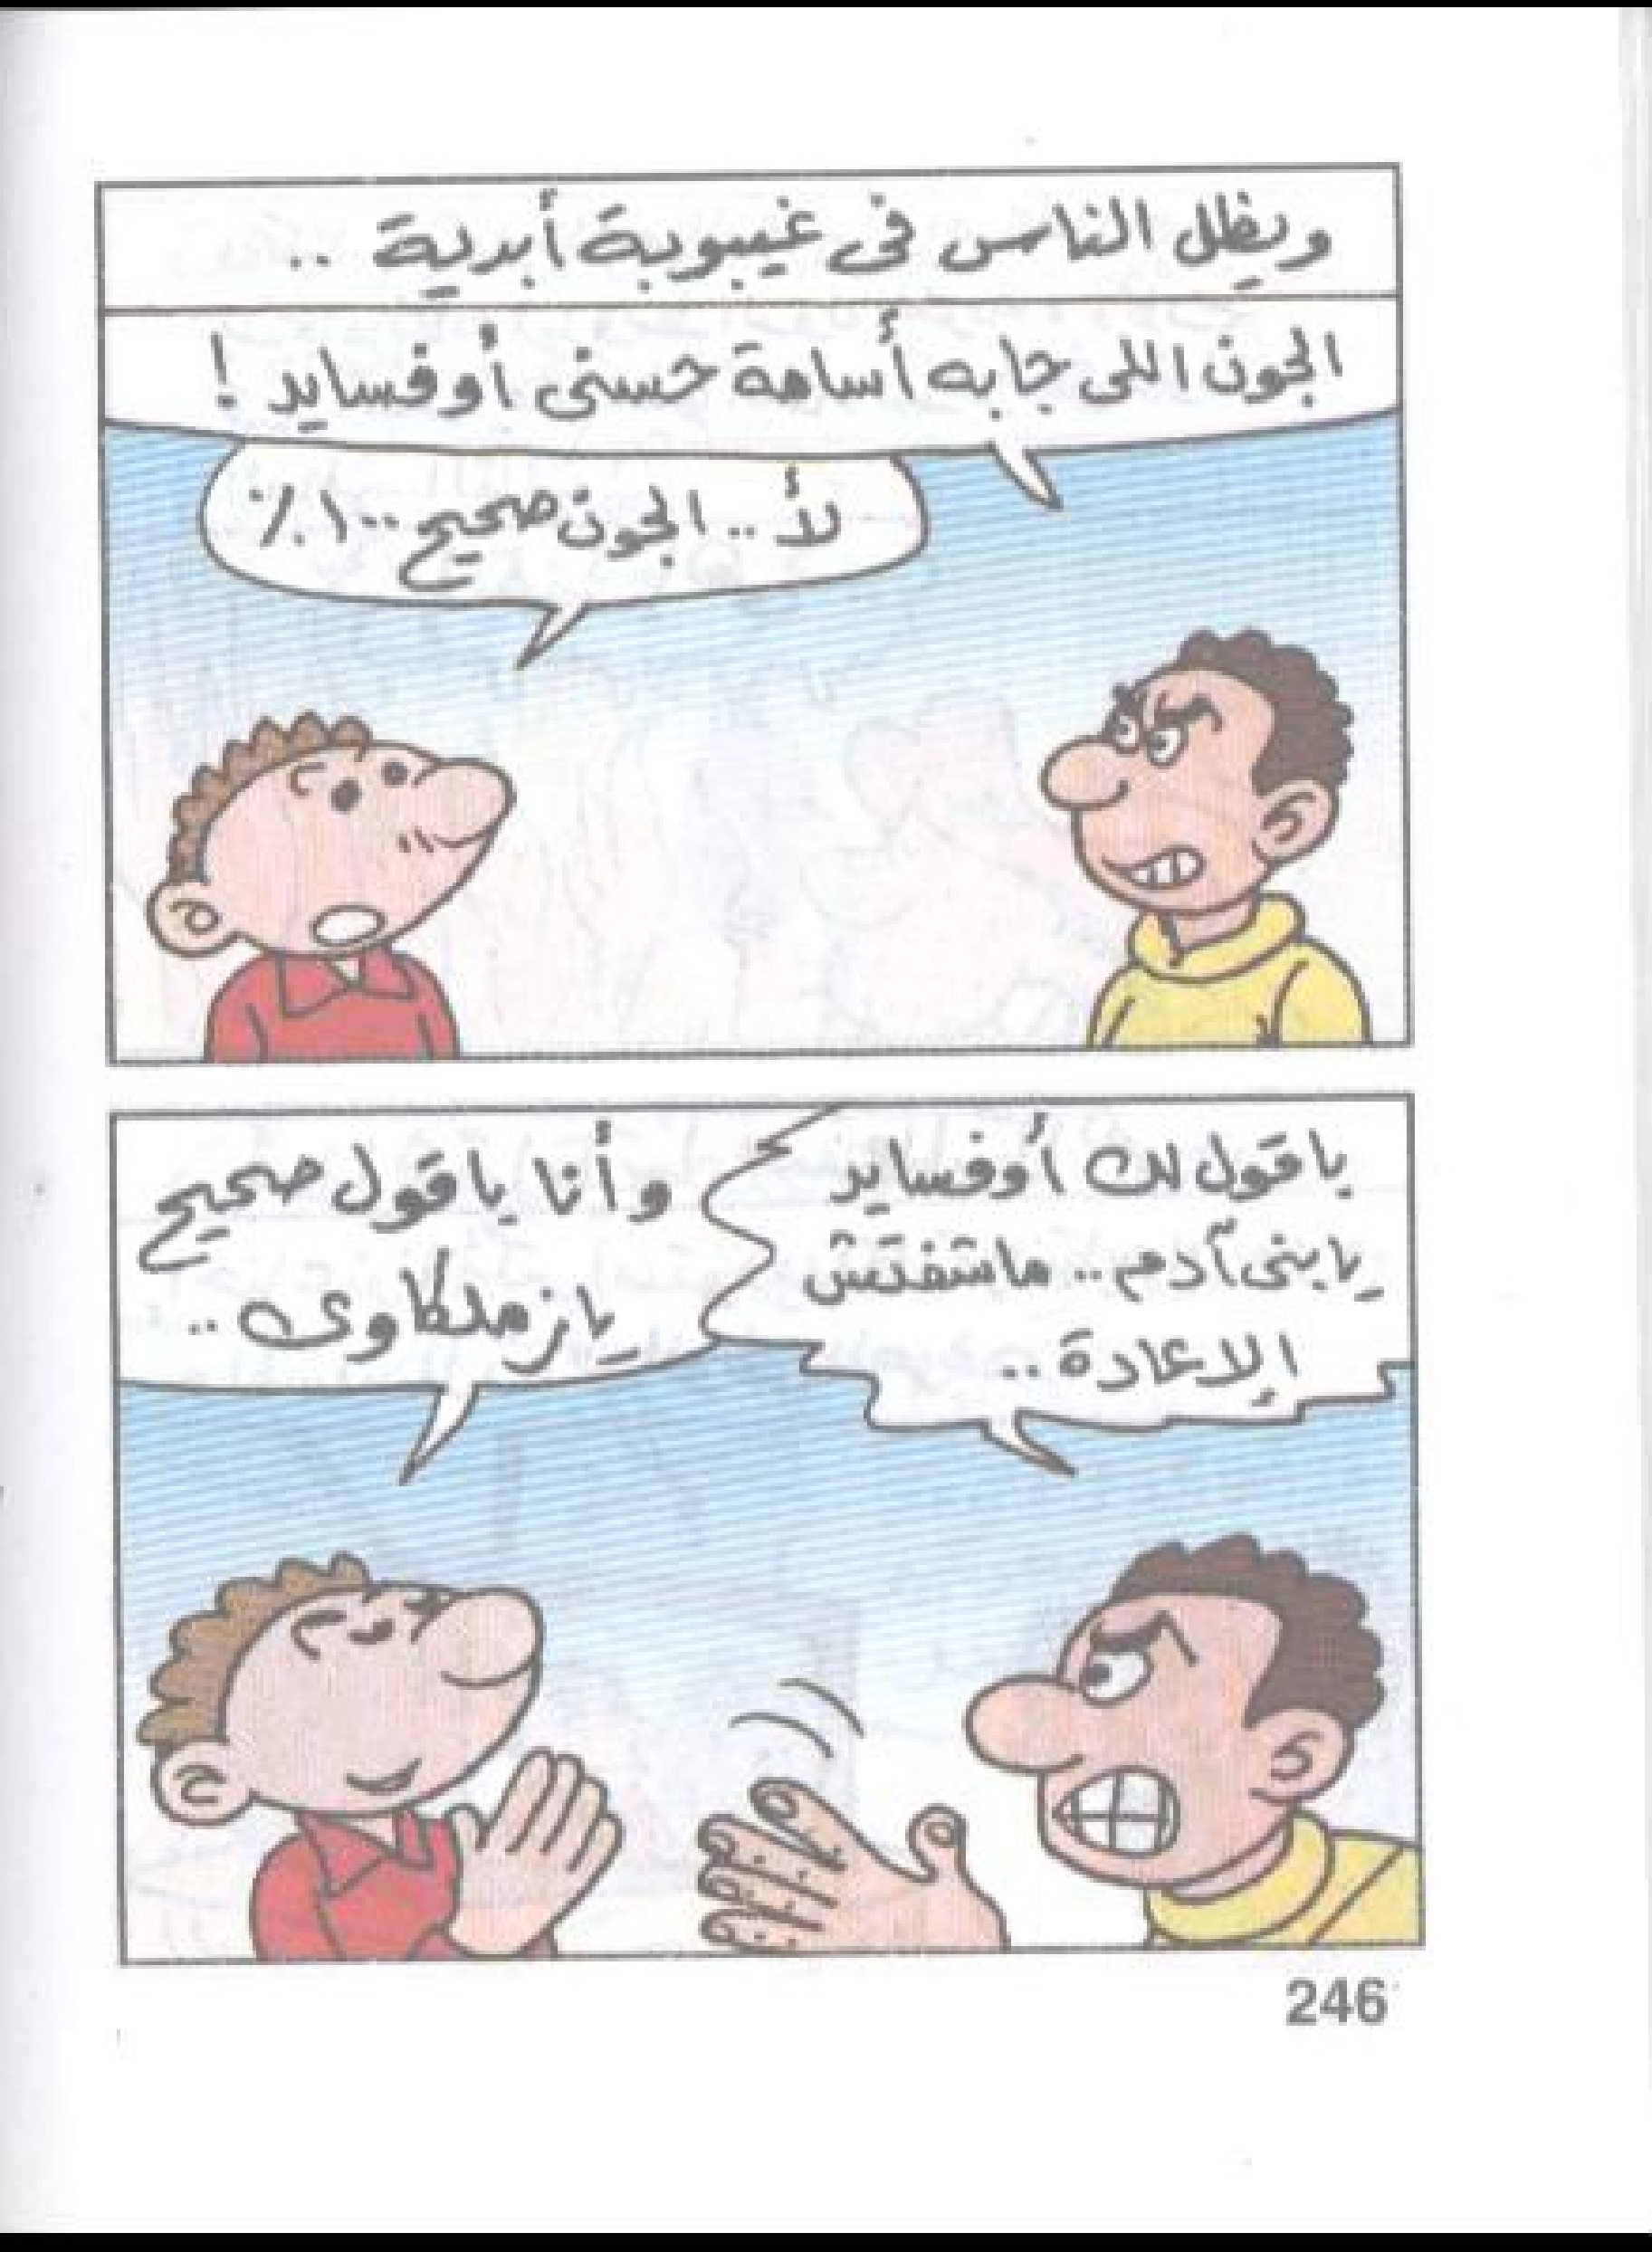 ويظل الناس فى غيبوبة أبدية ..
الجون اللى جابه أسامة حسنى أوفسايد !
لأ .. الجون صحيح ١٠٠٪
باقول لك أوفسايد
يابنى آدم .. ماشفتش
الإعادة ..
وأنا باقول صحيح
يازملكاوى ..
246